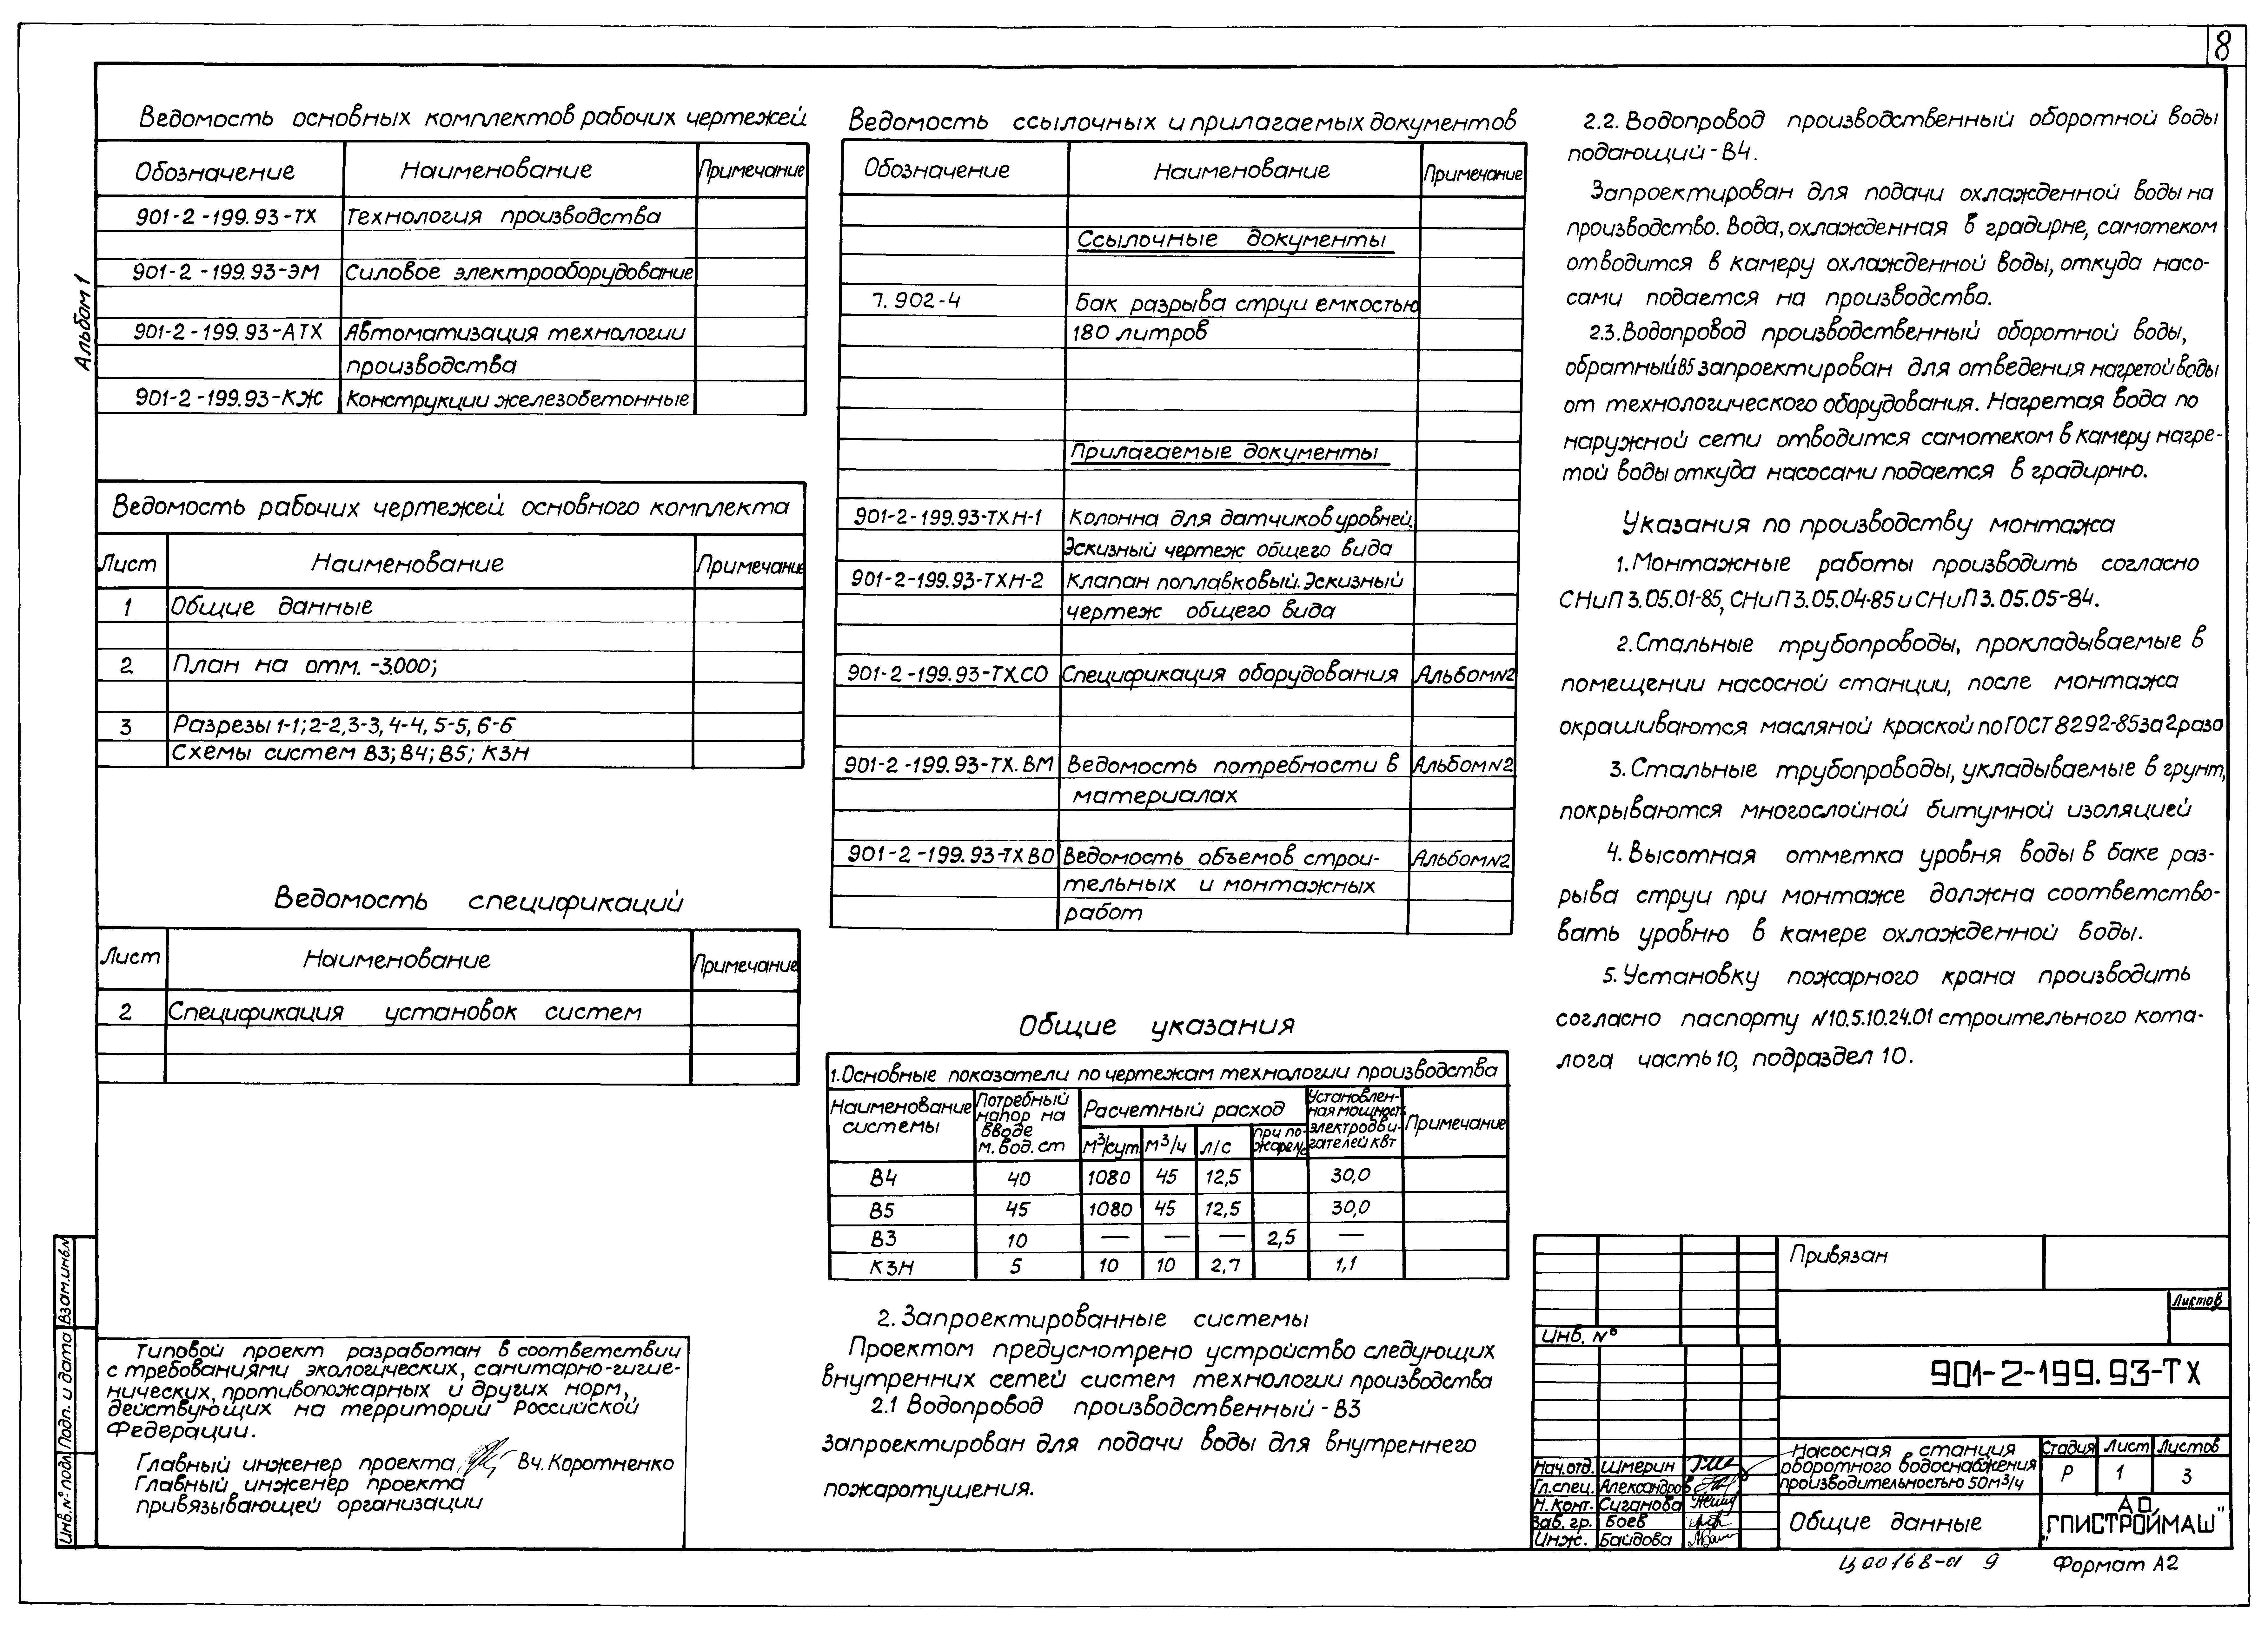 8
Альбом 1
Ведомость основных комплектов рабочих чертежей
Обозначение Наименование Примечание
901-2-199.93-ТХ Технология производства
901-2-199.93-ЭМ Силовое электрооборудование
901-2-199.93-АТХ Автоматизация технологии
производства
901-2-199.93-КЖ Конструкции железобетонные
Ведомость рабочих чертежей основного комплекта
Лист Наименование Примечание
1 Общие данные
2 План на отм. -3.000;
3 Разрезы 1-1; 2-2, 3-3, 4-4, 5-5, 6-6
Схемы систем В3; В4; В5; К3Н
Ведомость спецификаций
Лист Наименование Примечание
2 Спецификация установок систем
Типовой проект разработан в соответствии
с требованиями экологических, санитарно-гигие-
нических, противопожарных и других норм,
действующих на территории Российской
Федерации.
Главный инженер проекта Вч. Коротненко
Главный инженер проекта
привязывающей организации
Взам.инв.№
Подп. и дата
Инв.№ подл
Ведомость ссылочных и прилагаемых документов
Обозначение Наименование Примечание
Ссылочные документы
7.902-4 Бак разрыва струи емкостью
180 литров
Прилагаемые документы
901-2-199.93-ТХН-1 Колонна для датчиков уровней.
Эскизный чертеж общего вида
901-2-199.93-ТХН-2 Клапан поплавковый. Эскизный
чертеж общего вида
901-2-199.93-ТХ.СО Спецификация оборудования Альбом№2
901-2-199.93-ТХ.ВМ Ведомость потребности в Альбом№2
материалах
901-2-199.93-ТХ ВО Ведомость объемов строи- Альбом№2
тельных и монтажных
работ
Общие указания
1. Основные показатели по чертежам технологии производства
Наименование системы Потребный напор на вводе м. вод. ст Расчетный расход Установлен-ная мощность электродви-гателей квт Примечание
м³/сут. м³/ч л/с При по-жаре л/с
В4 40 1080 45 12,5 30,0
В5 45 1080 45 12,5 30,0
В3 10 — — — 2,5 —
К3Н 5 10 10 2,7 1,1
2. Запроектированные системы
Проектом предусмотрено устройство следующих
внутренних сетей систем технологии производства
2.1 Водопровод производственный - В3
запроектирован для подачи воды для внутреннего
пожаротушения.
2.2. Водопровод производственный оборотной воды
подающий - В4.
Запроектирован для подачи охлажденной воды на
производство. Вода, охлажденная в градирне, самотеком
отводится в камеру охлажденной воды, откуда насо-
сами подается на производство.
2.3. Водопровод производственный оборотной воды,
обратный В5 запроектирован для отведения нагретой воды
от технологического оборудования. Нагретая вода по
наружной сети отводится самотеком в камеру нагре-
той воды откуда насосами подается в градирню.
Указания по производству монтажа
1. Монтажные работы производить согласно
СНиП 3.05.01-85, СНиП 3.05.04-85 и СНиП 3.05.05-84.
2. Стальные трубопроводы, прокладываемые в
помещении насосной станции, после монтажа
окрашиваются масляной краской по ГОСТ 8292-85 за 2 раза
3. Стальные трубопроводы, укладываемые в грунт,
покрываются многослойной битумной изоляцией
4. Высотная отметка уровня воды в баке раз-
рыва струи при монтаже должна соответство-
вать уровню в камере охлажденной воды.
5. Установку пожарного крана производить
согласно паспорту №10.5.10.24.01 строительного ката-
лога часть 10, подраздел 10.
Привязан
Листов
Инв. №
901-2-199.93-ТХ
Нач.отд. Шмерин
Гл.спец. Александров
Н.конт. Суганова
Зав.гр. Боев
Инж. Байдова
Насосная станция
оборотного водоснабжения
производительностью 50м³/ч
Стадия Лист Листов
Р 1 3
Общие данные
АО,
"ГПИСТРОЙМАШ"
Ц00168-01 9
Формат А2